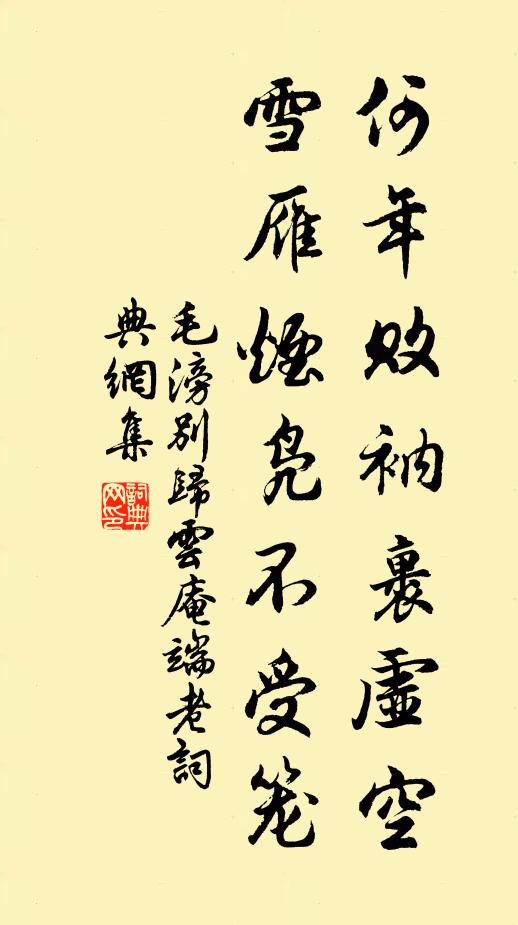 何年敗衲裹虛空
雪雁煙鳧不受笼
毛滂別歸雲庵端老詞
典網集
詞典网印